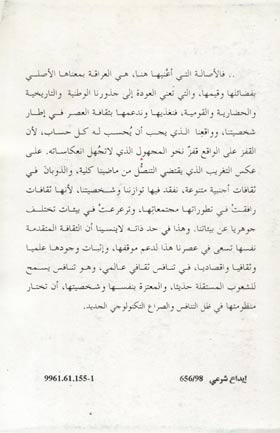 .. فالأصالة التي أعنيها هنا، هي العراقة بمعناها الأصلي
بفضائلها وقيمها، والتي تعني العودة إلى جذورنا الوطنية والتاريخية
والحضارية والقومية، فنغذيها وندعمها بثقافة العصر في إطار
شخصيتنا، وواقعنا الذي يجب أن يُحسب له كل حساب، لأن
القفز على الواقع قفزٌ نحو المجهول الذي لانجهل انعكاساته. على
عكس التغريب الذي يقتضي التنصُّل من ماضينا كلية، والذوبان في
ثقافات أجنبية متنوعة، نفقد فيها توازننا وشخصيتنا، لأنها ثقافات
رافقتْ في تطوراتها مجتمعاتِها، وترعرعتْ في بيئات تختلف
جوهريا عن بيئاتنا. وهذا في حد ذاته لاينسينا أن الثقافة المتقدمة
نفسها تسعى في عصرنا هذا لدعم موقفها، وإثبات وجودها علميا
وثقافيا واقتصاديا، في تنافس ثقافي عالمي، وهو تنافس يسمح
للشعوب المستقلة حديثا، والمعتزة بنفسها وشخصيتها، أن تختار
منظومتها في ظل التنافس والصراع التكنولوجي الجديد.
إيداع شرعي 656/98
9961.61.155-1